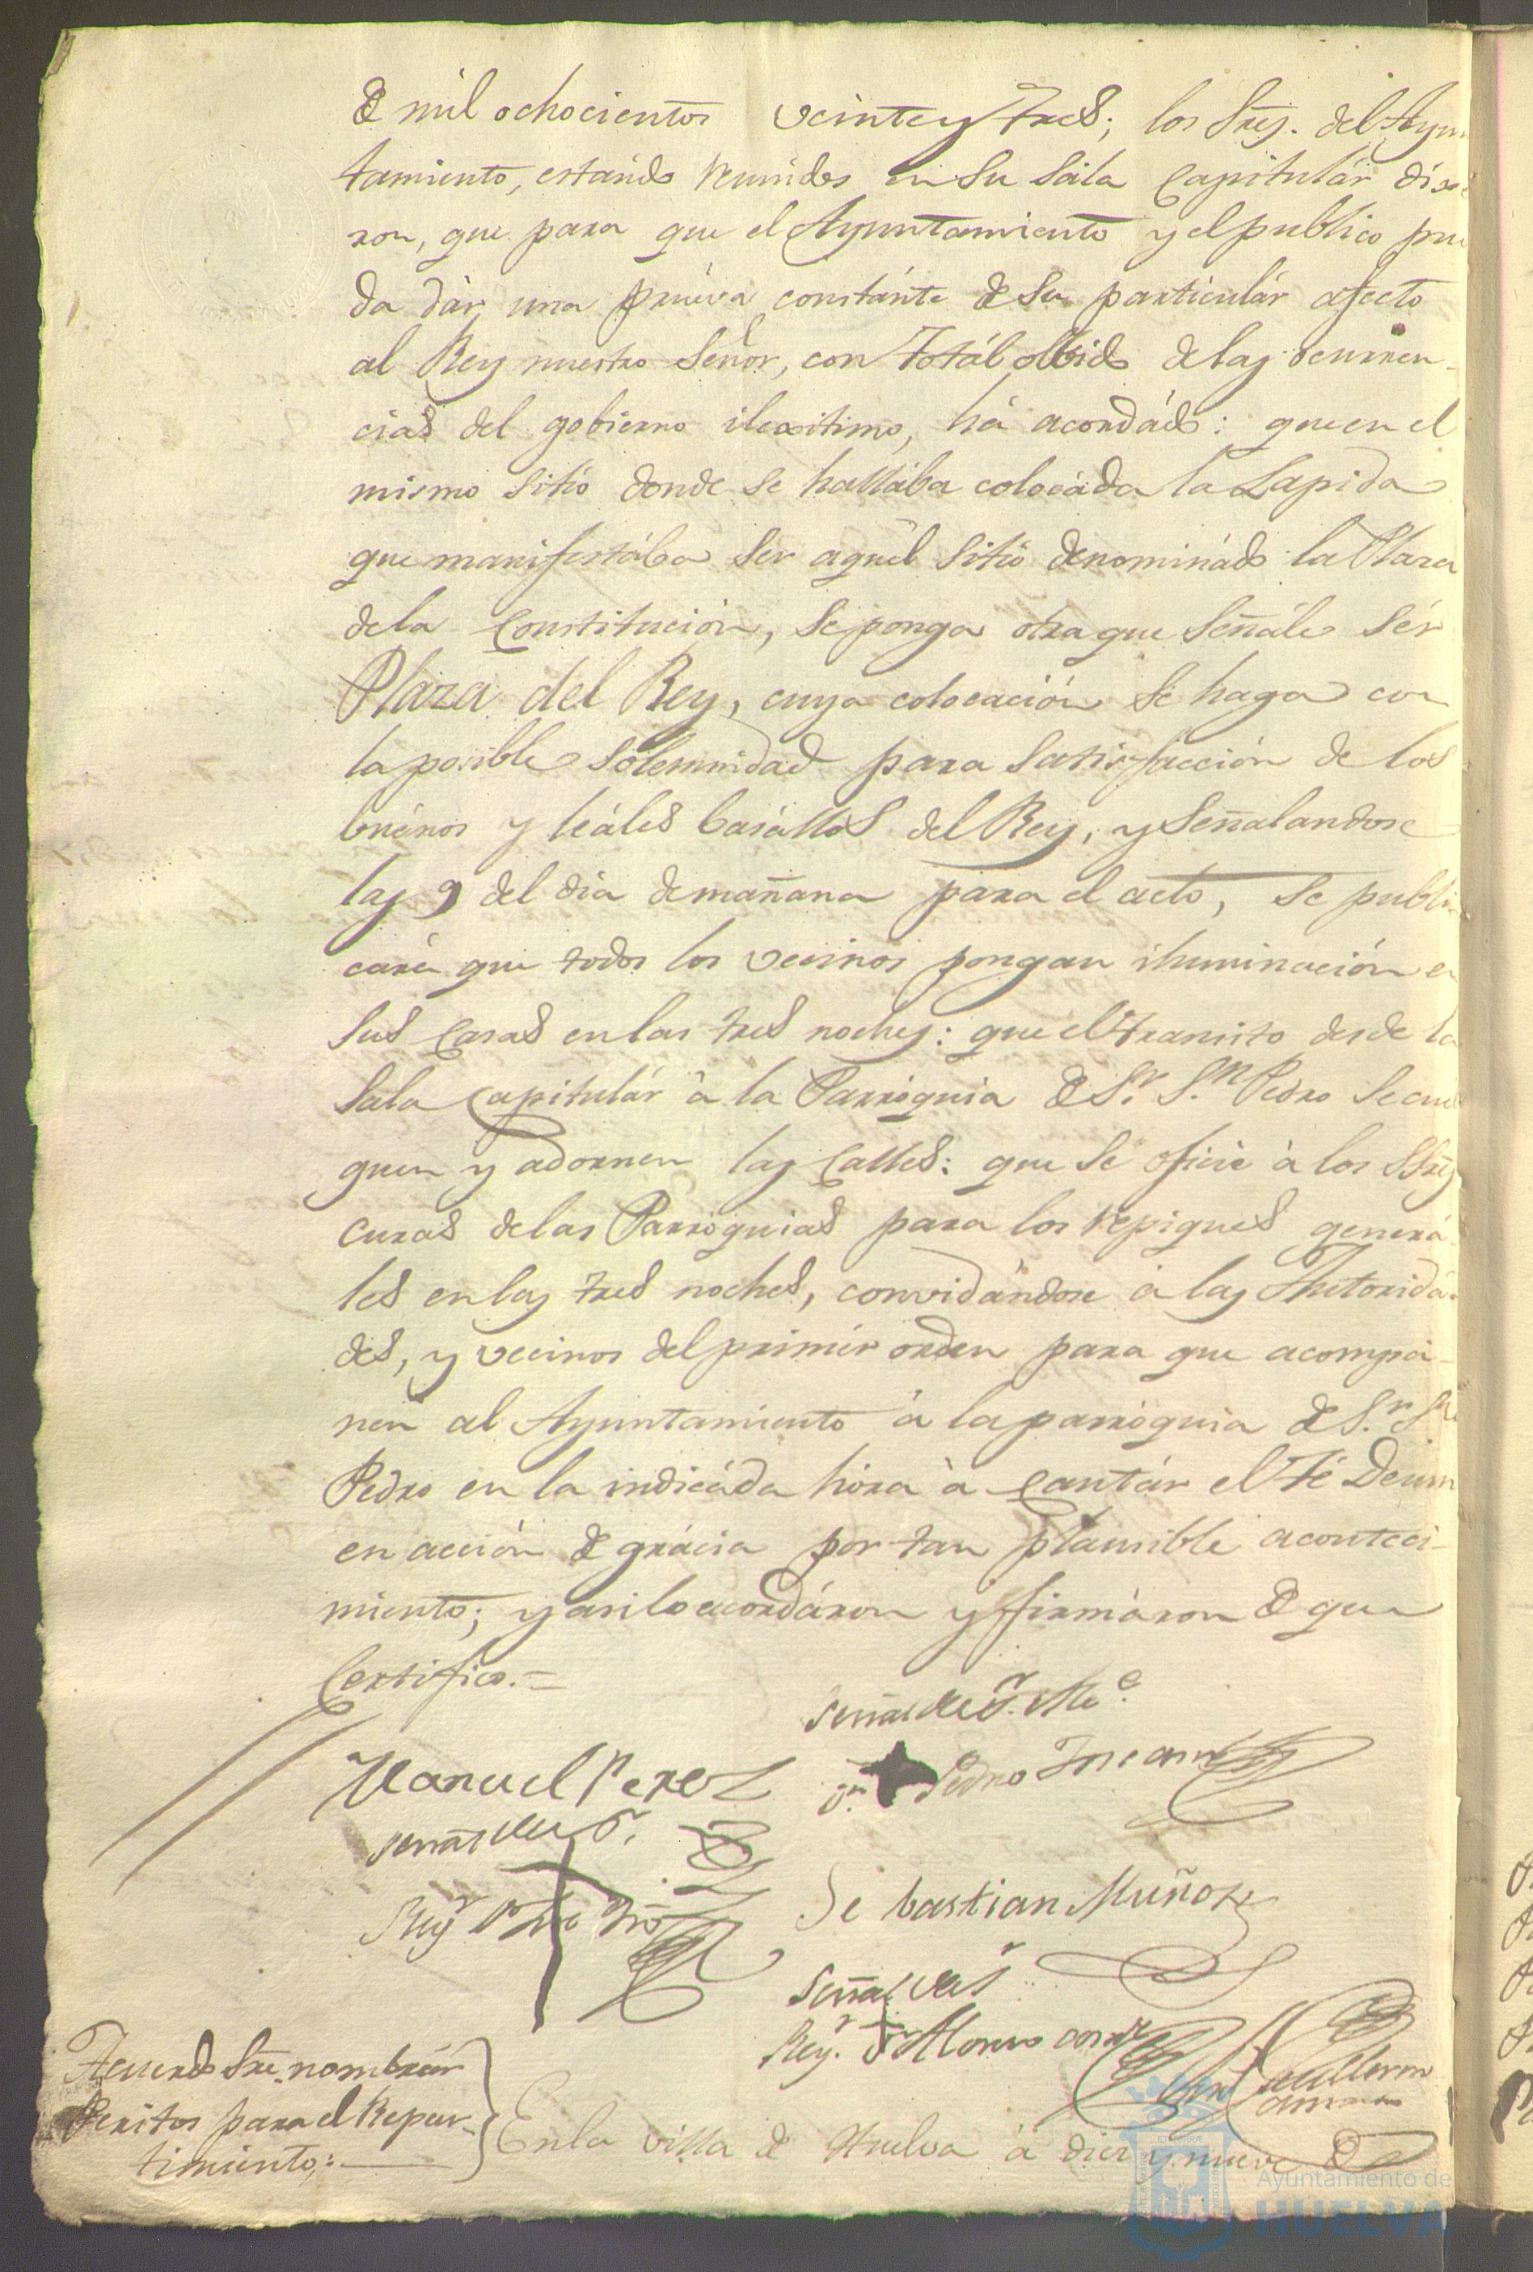 de mil ochocientos veinte y tres; los Sres. del Ayun
tamiento, estándo reunidos en su Sála Capitulár dixe
ron, que para que el Ayuntamiento y el publico pue
da dár una pruéva constánte de su particulár afecto
al Rey nuestro Señor, con totál olbido de las ocurren-
cias del gobierno ilexitimo, há acordádo: que en el
mismo sitio donde se hallába colocáda la Lapida
que manifestába ser aquél sitio denominádo la Plaza
de la Constitución, se ponga otra que señále sér
Plaza del Rey, cuya colocación se haga con
la posible solemnidad para satisfacción de los
buénos y leáles basállos del Rey, y señalandose
las 9 del dia de mañana para el acto, se publi
cará que todos los vecinos pongan iluminación en
sus Casas en las tres noches: que el transito desde la
Sala Capitulár à la Parroquia de Sr. Sn. Pedro se cuel
guen y adornen las Calles: que se oficie à los SSres
Curas de las Parroquias para los repiques generá-
les en las tres noches, convidándose à las Autoridá-
des, y vecinos del primér orden para que acompa-
ñen al Ayuntamiento à la parroquia de Sr. Sn
Pedro en la indicáda hóra à cantár el Té Deum
en acción de grácia por tan plausible aconteci-
miento; y asi lo acordáron y firmáron de que
Certifico.=
Señal del Sr. Alce.
Manuel Perez
Dn. Pedro
Señal del Sr.
Regr
Sebastian Muñoz
Señal del Sr
Regr. Dn Alonso
Acuerdo sre. nombrár
Peritos para el Repar-
timiento:
En la villa de Huelva à diez y nueve de
Ayuntamiento de
HUELVA